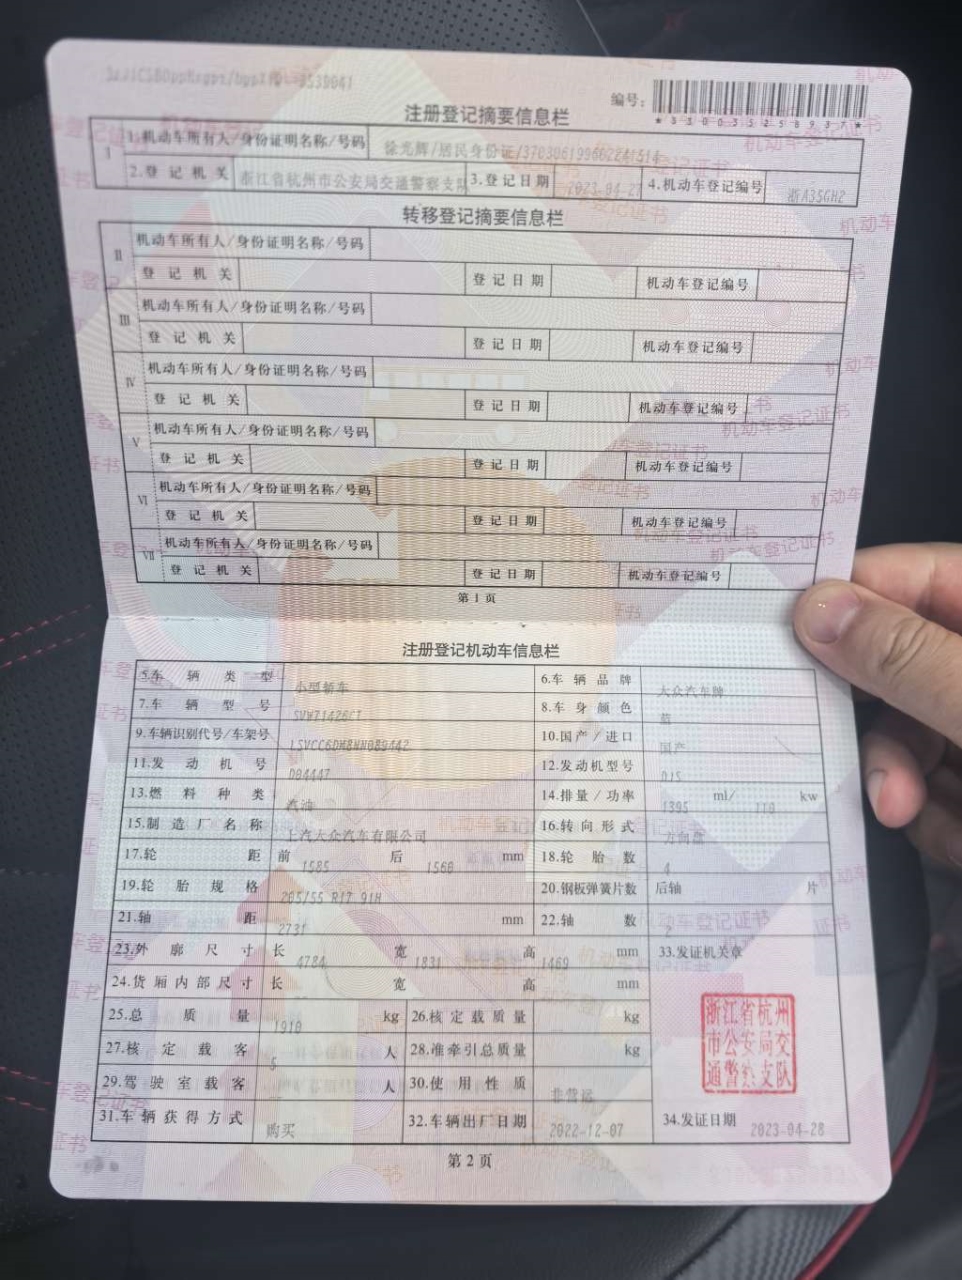 编号:
*330035258937*
注册登记摘要信息栏
I 1.机动车所有人/身份证明名称/号码 徐光辉/居民身份证/370306199602241514
2.登记机关 浙江省杭州市公安局交通警察支队 3.登记日期 2023-04-27 4.机动车登记编号 浙A35GH2
转移登记摘要信息栏
II 机动车所有人/身份证明名称/号码
登记机关 登记日期 机动车登记编号
III 机动车所有人/身份证明名称/号码
登记机关 登记日期 机动车登记编号
IV 机动车所有人/身份证明名称/号码
登记机关 登记日期 机动车登记编号
V 机动车所有人/身份证明名称/号码
登记机关 登记日期 机动车登记编号
VI 机动车所有人/身份证明名称/号码
登记机关 登记日期 机动车登记编号
VII 机动车所有人/身份证明名称/号码
登记机关 登记日期 机动车登记编号
第1页
注册登记机动车信息栏
5.车辆类型 小型轿车 6.车辆品牌 大众汽车牌
7.车辆型号 SVW71426CT 8.车身颜色 蓝
9.车辆识别代号/车架号 LSVCC6DM8NN089442 10.国产/进口 国产
11.发动机号 D84447 12.发动机型号 DJS
13.燃料种类 汽油 14.排量/功率 1395 ml/ 110 kw
15.制造厂名称 上汽大众汽车有限公司 16.转向形式 方向盘
17.轮距 前 1585 后 1560 mm 18.轮胎数 4
19.轮胎规格 205/55 R17 91H 20.钢板弹簧片数 后轴 片
21.轴距 2731 mm 22.轴数 2
23.外廓尺寸 长 4784 宽 1831 高 1469 mm 33.发证机关章
24.货厢内部尺寸 长 宽 高 mm
25.总质量 1910 kg 26.核定载质量 kg
浙江省杭州市公安局交通警察支队
27.核定载客 5 人 28.准牵引总质量 kg
29.驾驶室载客 人 30.使用性质 非营运
31.车辆获得方式 购买 32.车辆出厂日期 2022-12-07 34.发证日期 2023-04-28
第2页